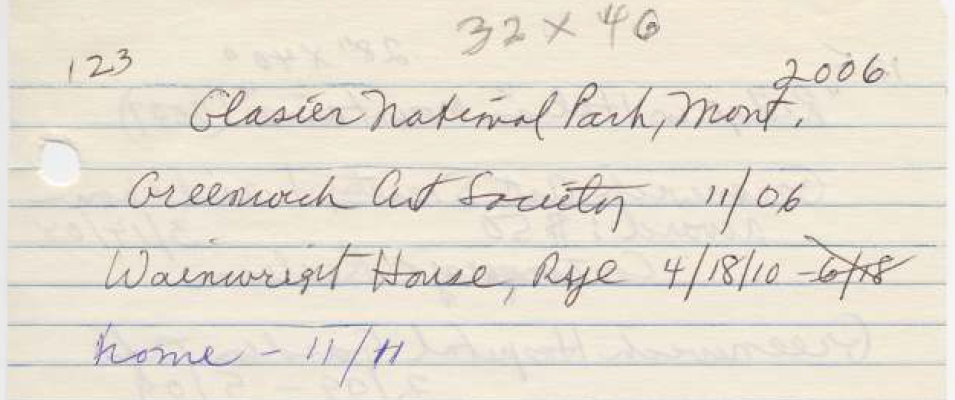 32 x 40
123
2006
Glasier National Park, Mont.
Greenwich Art Society 11/06
Wainwright House, Rye 4/18/10 - 6/18
home - 11/11